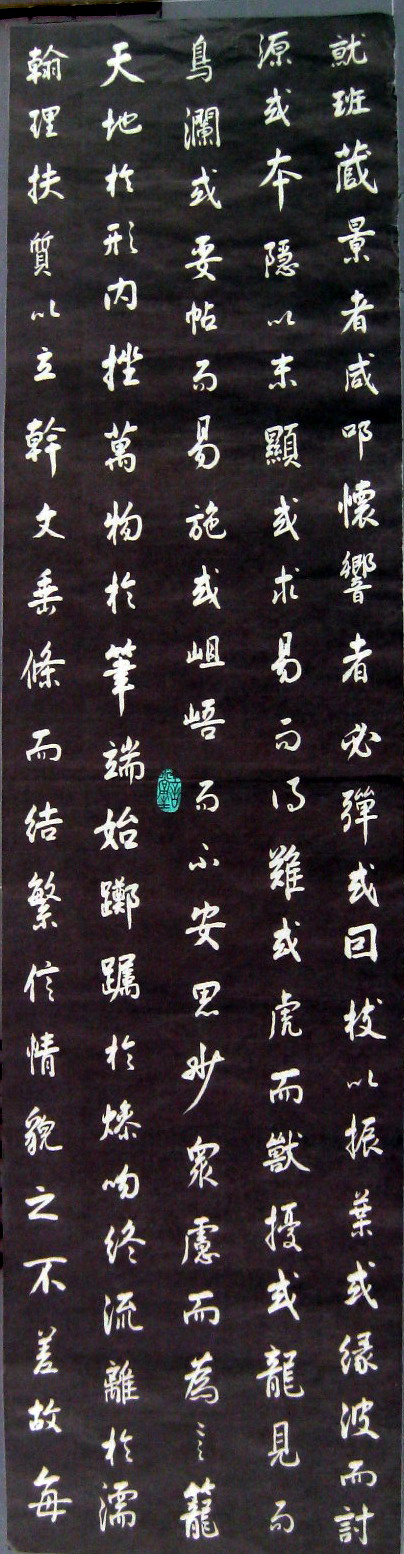 就班藏景者咸叩懷響者必彈或因枝以振葉或緣波而討
源或本隱以末顯或求易而得難或虎而獸擾或龍見而
鳥瀾或妥帖而易施或岨峿而不安思妙眾慮而為言籠
天地於形內挫萬物於筆端始躑躅於燥吻終流離於濡
翰理扶質以立幹文垂條而結繁信情貌之不差故每